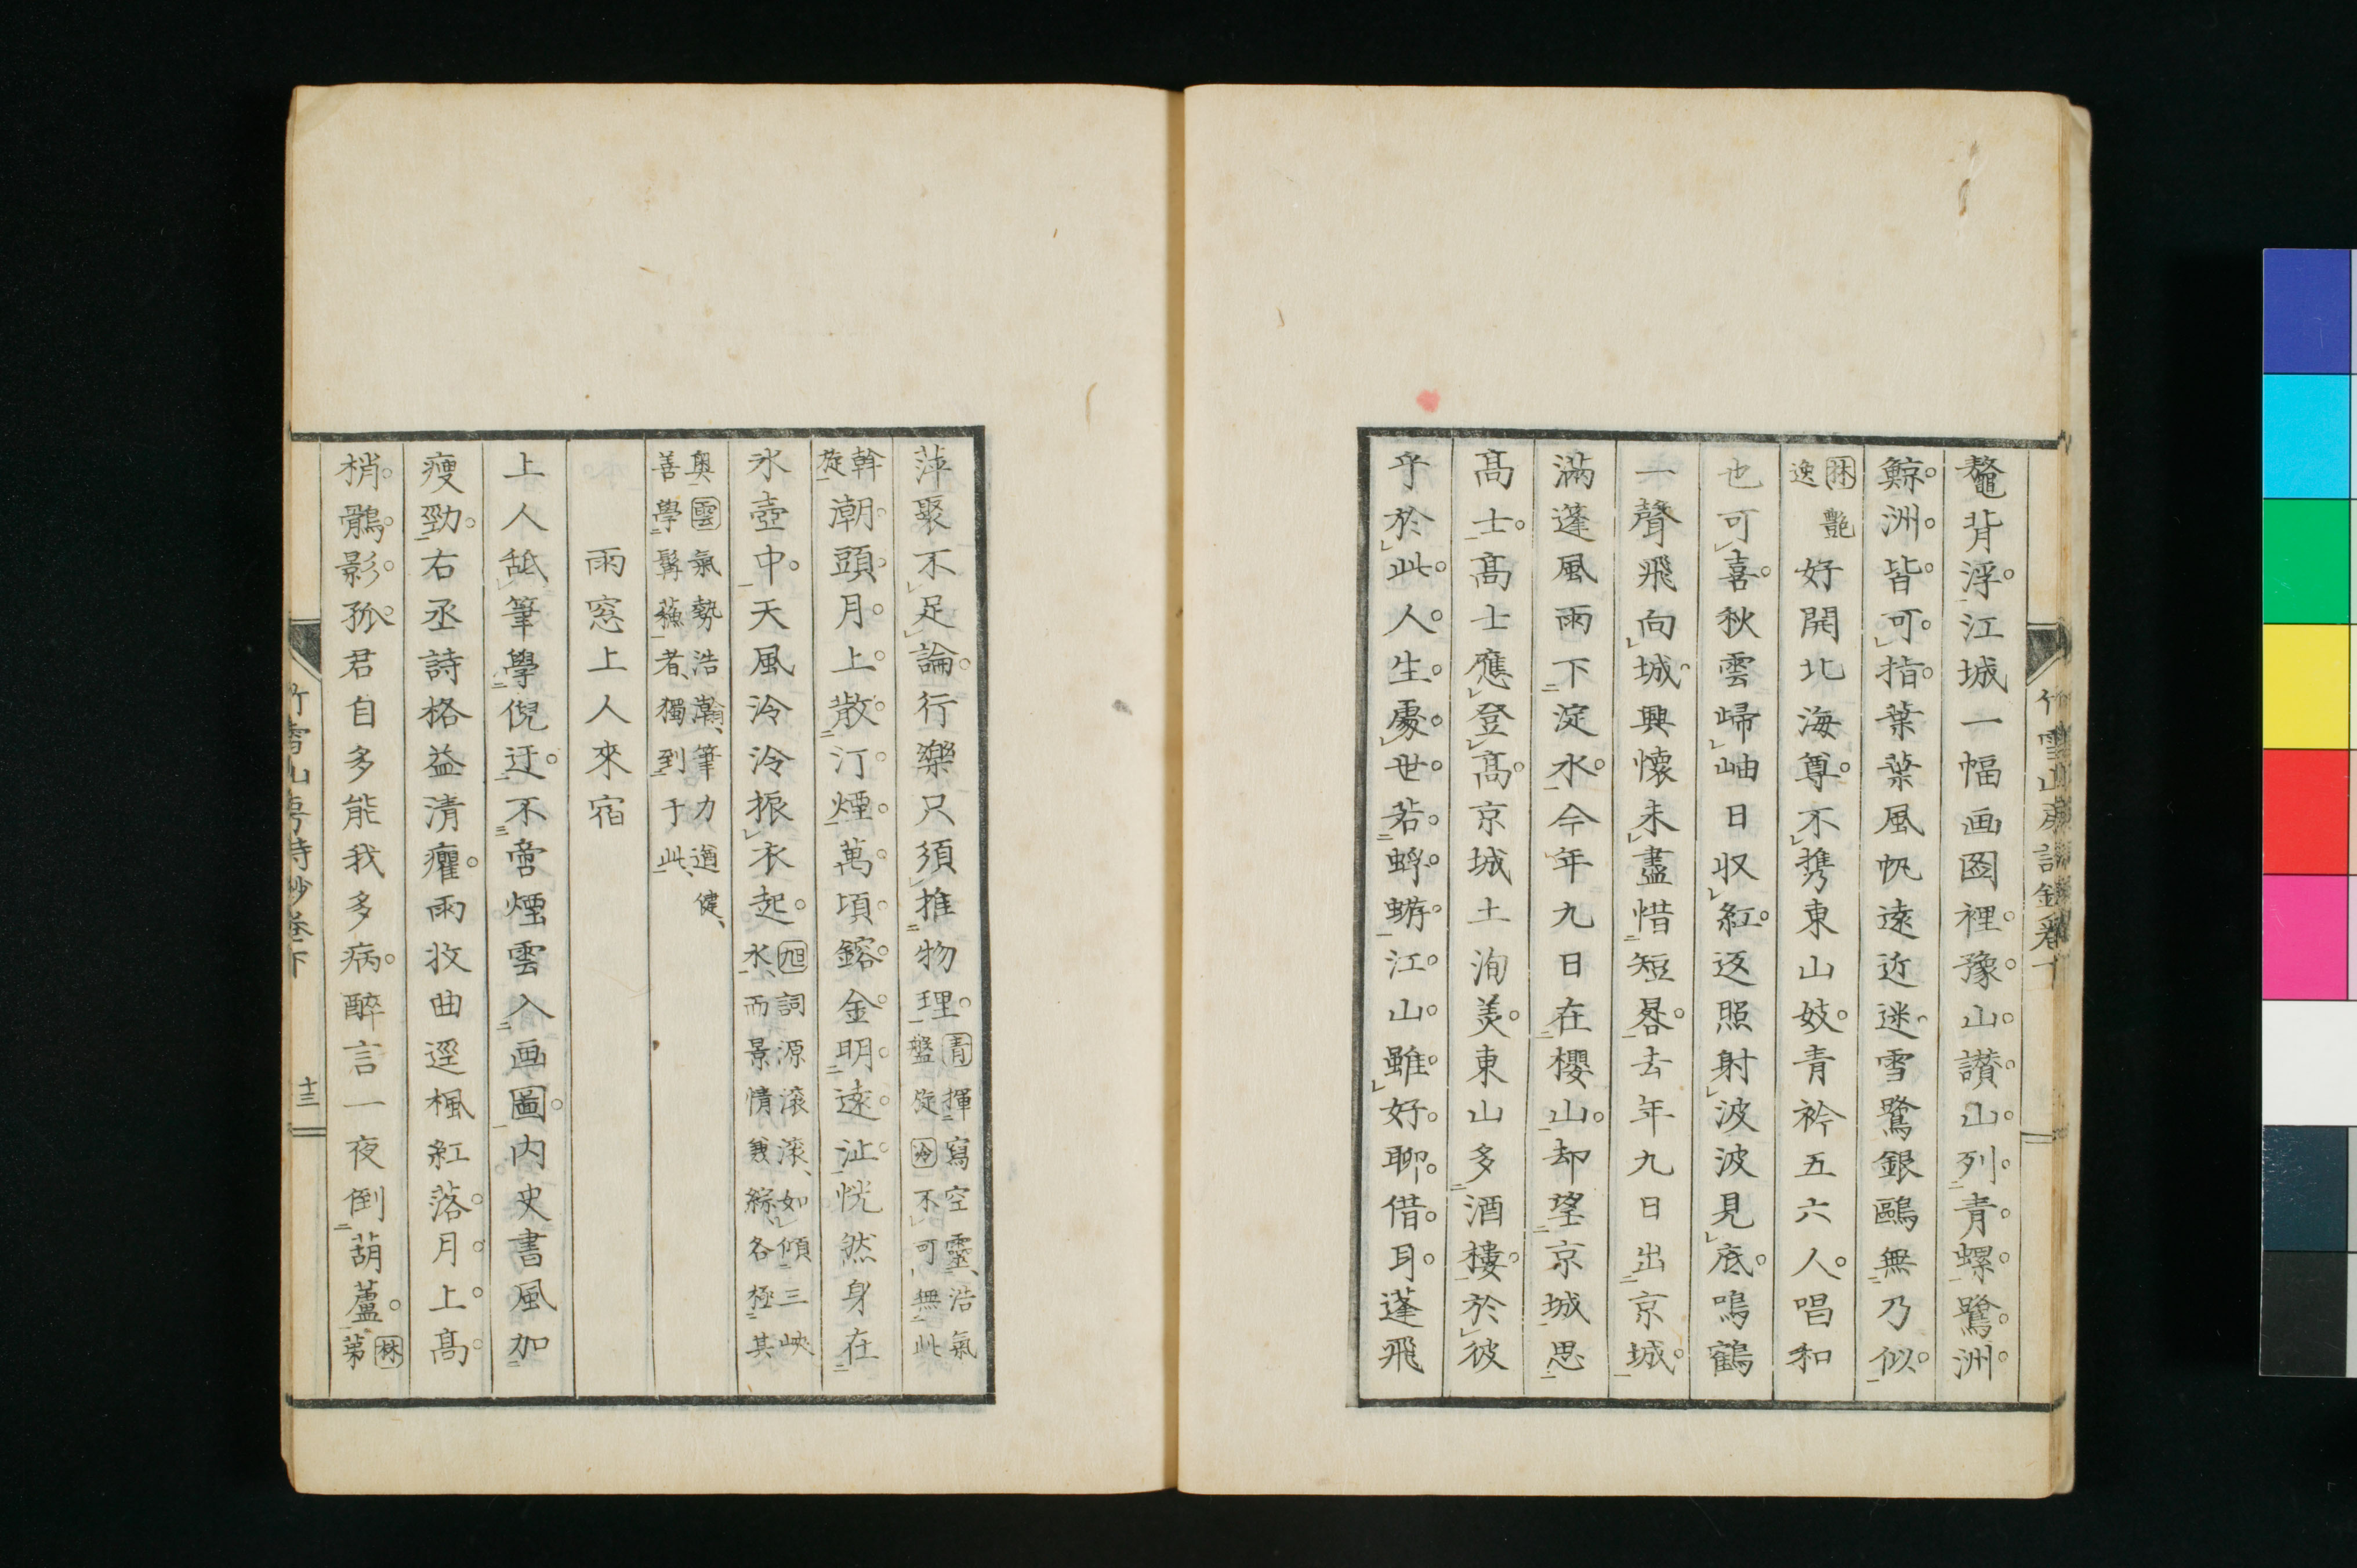 鼇背浮江城一幅画図裡豫山讃山列青螺鷺洲
鯨洲皆可指葉葉風帆遠近迷雪鷺銀鷗無乃似
林艶
逸
好開北海尊不携東山妓青衿五六人唱和
也可喜秋雲歸岫日収紅返照射波波見底鳴鶴
一聲飛向城興懷未盡惜短晷去年九日出京城
滿蓬風雨下淀水今年九日在櫻山却望京城思
高士高士應登高京城土洵美東山多酒樓於彼
乎於此人生處世若蜉蝣江山雖好聊借耳蓬飛
萍聚不足論行樂只須推物理
青揮寫空靈浩氣
盤旋冷不可無此
斡
旋
潮頭月上散汀煙萬頃鎔金明遠沚恍然身在
氷壺中天風泠泠振衣起
旭詞源滚滚如傾三峽
水而景情兼綜各極其
奥雲氣勢浩瀚筆力遒健
善學髯蘓者獨到于此
雨窓上人來宿
上人舐筆學倪迂不啻煙雲入画圖内史書風加
瘦勁右丞詩格益清癯雨收曲逕楓紅落月上高
梢鶻影孤君自多能我多病醉言一夜倒葫蘆
林
第
竹雪山房詩鈔卷下
十三